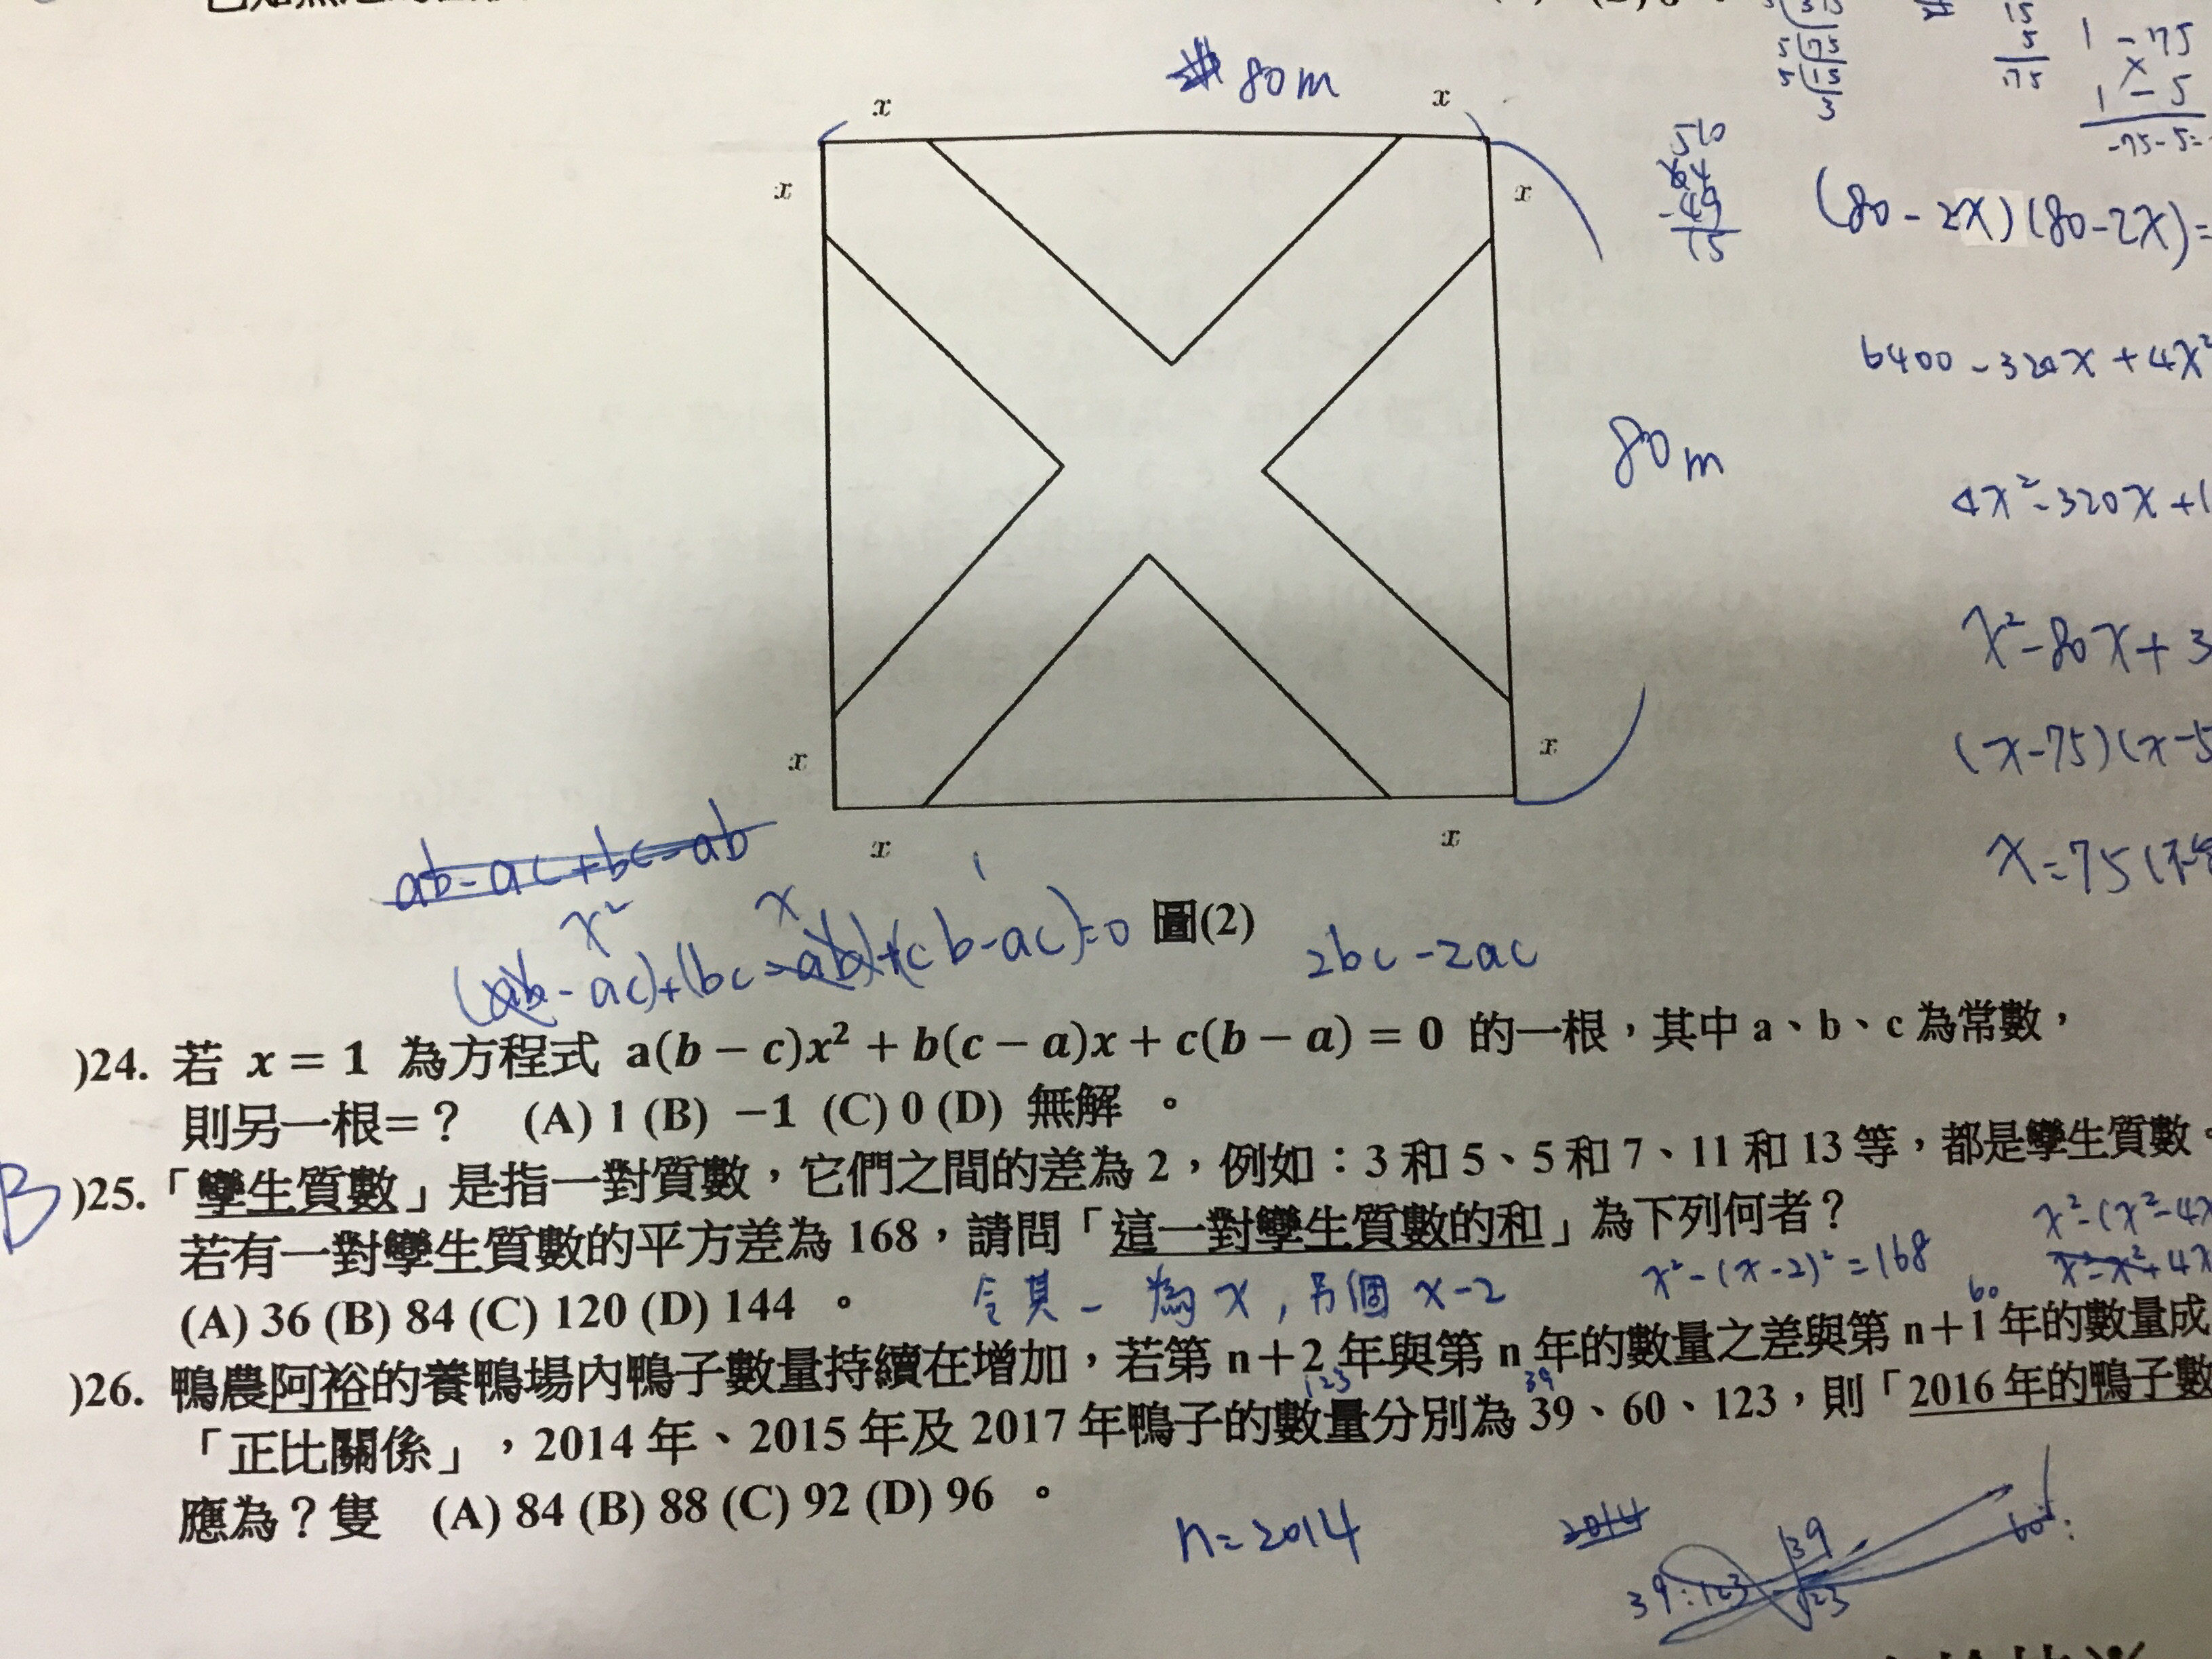 80m
x x
x x
510
64
-49
15
15
5
75
1 -75
1 -5
-75-5=-
(80-2x)(80-2x)=
6400-320x+4x²
80m
4x²-320x+1
x²-80x+3
(x-75)(x-5
x x
x x
x=75(不
ab-ac+bc-ab
x² x 1
(ab-ac)+(bc-ab)+(cb-ac)=0 圖(2) 2bc-2ac
)24. 若 x = 1 為方程式 a(b − c)x² + b(c − a)x + c(b − a) = 0 的一根,其中 a、b、c 為常數,
則另一根=? (A) 1 (B) −1 (C) 0 (D) 無解 。
B )25.「孿生質數」是指一對質數,它們之間的差為 2,例如:3 和 5、5 和 7、11 和 13 等,都是孿生質數。
若有一對孿生質數的平方差為 168,請問「這一對孿生質數的和」為下列何者? x²-(x²-4x
(A) 36 (B) 84 (C) 120 (D) 144 。 令其一為x,另個x-2 x²-(x-2)²=168 x²-x²+4x
60
)26. 鴨農阿裕的養鴨場內鴨子數量持續在增加,若第 n+2 年與第 n 年的數量之差與第 n+1 年的數量成
123 39
「正比關係」,2014 年、2015 年及 2017 年鴨子的數量分別為 39、60、123,則「2016 年的鴨子數
應為?隻 (A) 84 (B) 88 (C) 92 (D) 96 。
n=2014 2014
39:123 39
123 60: